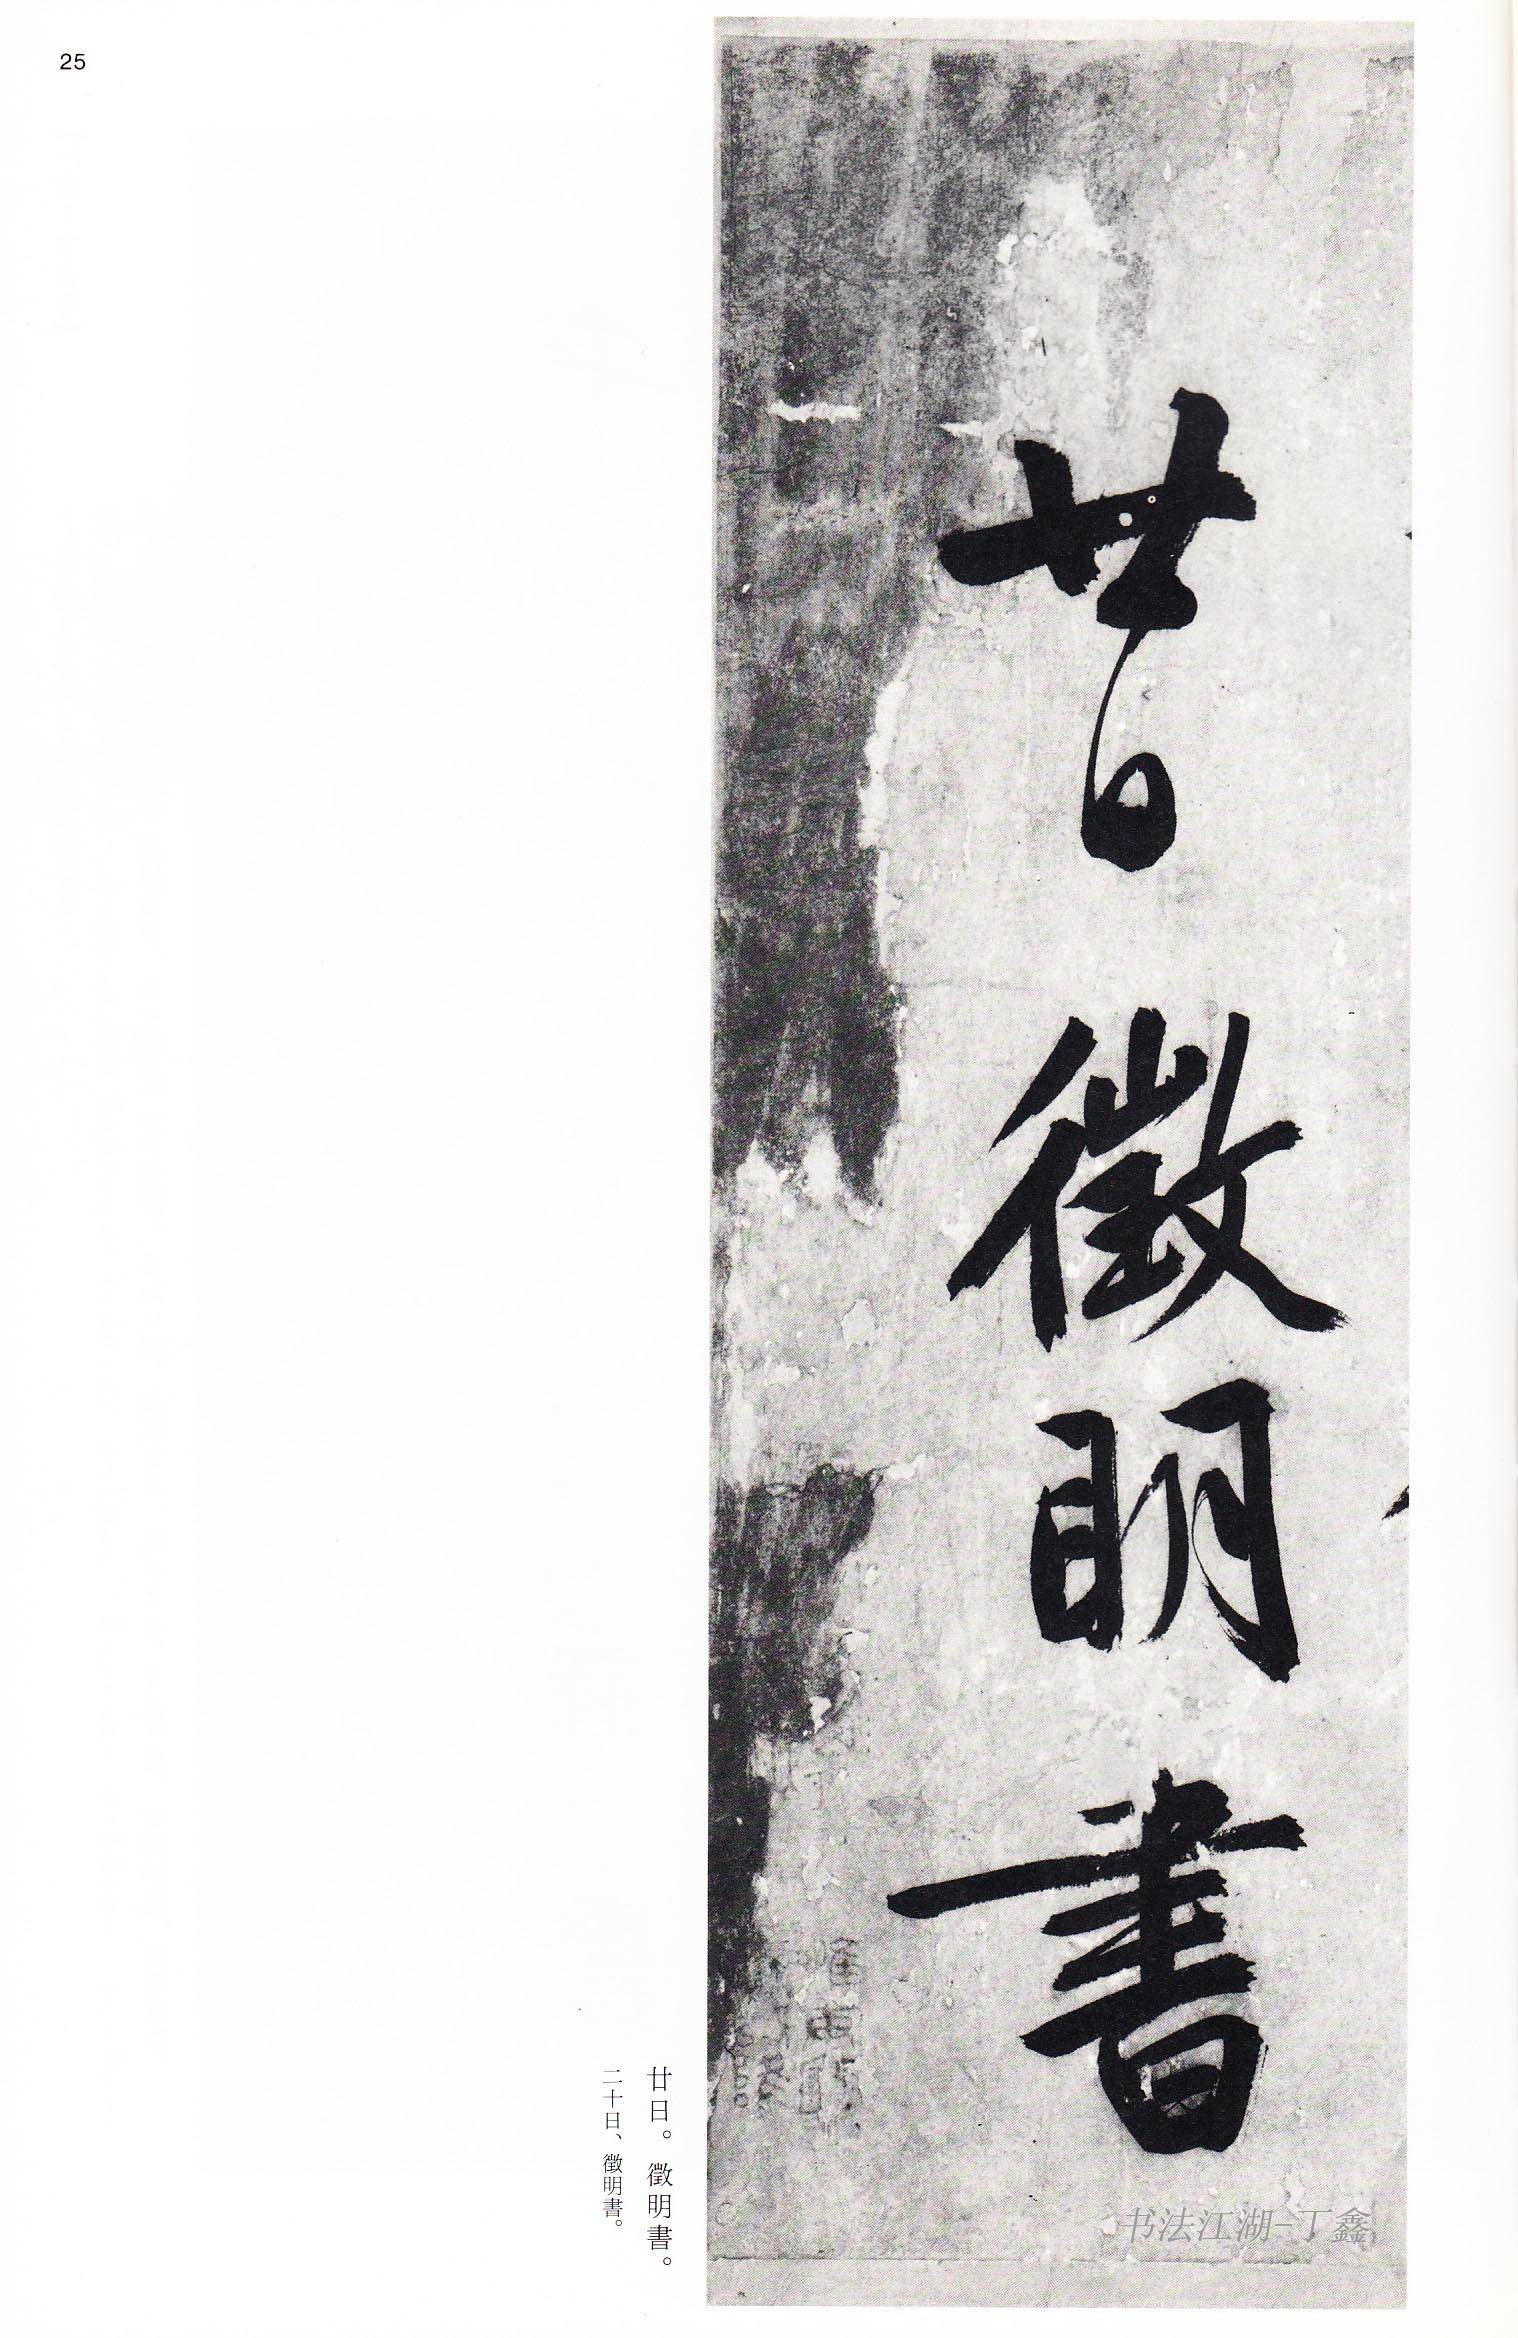 25
廿日徵明書
廿日。徵明書。
二十日、徵明書。
书法江湖-丁鑫